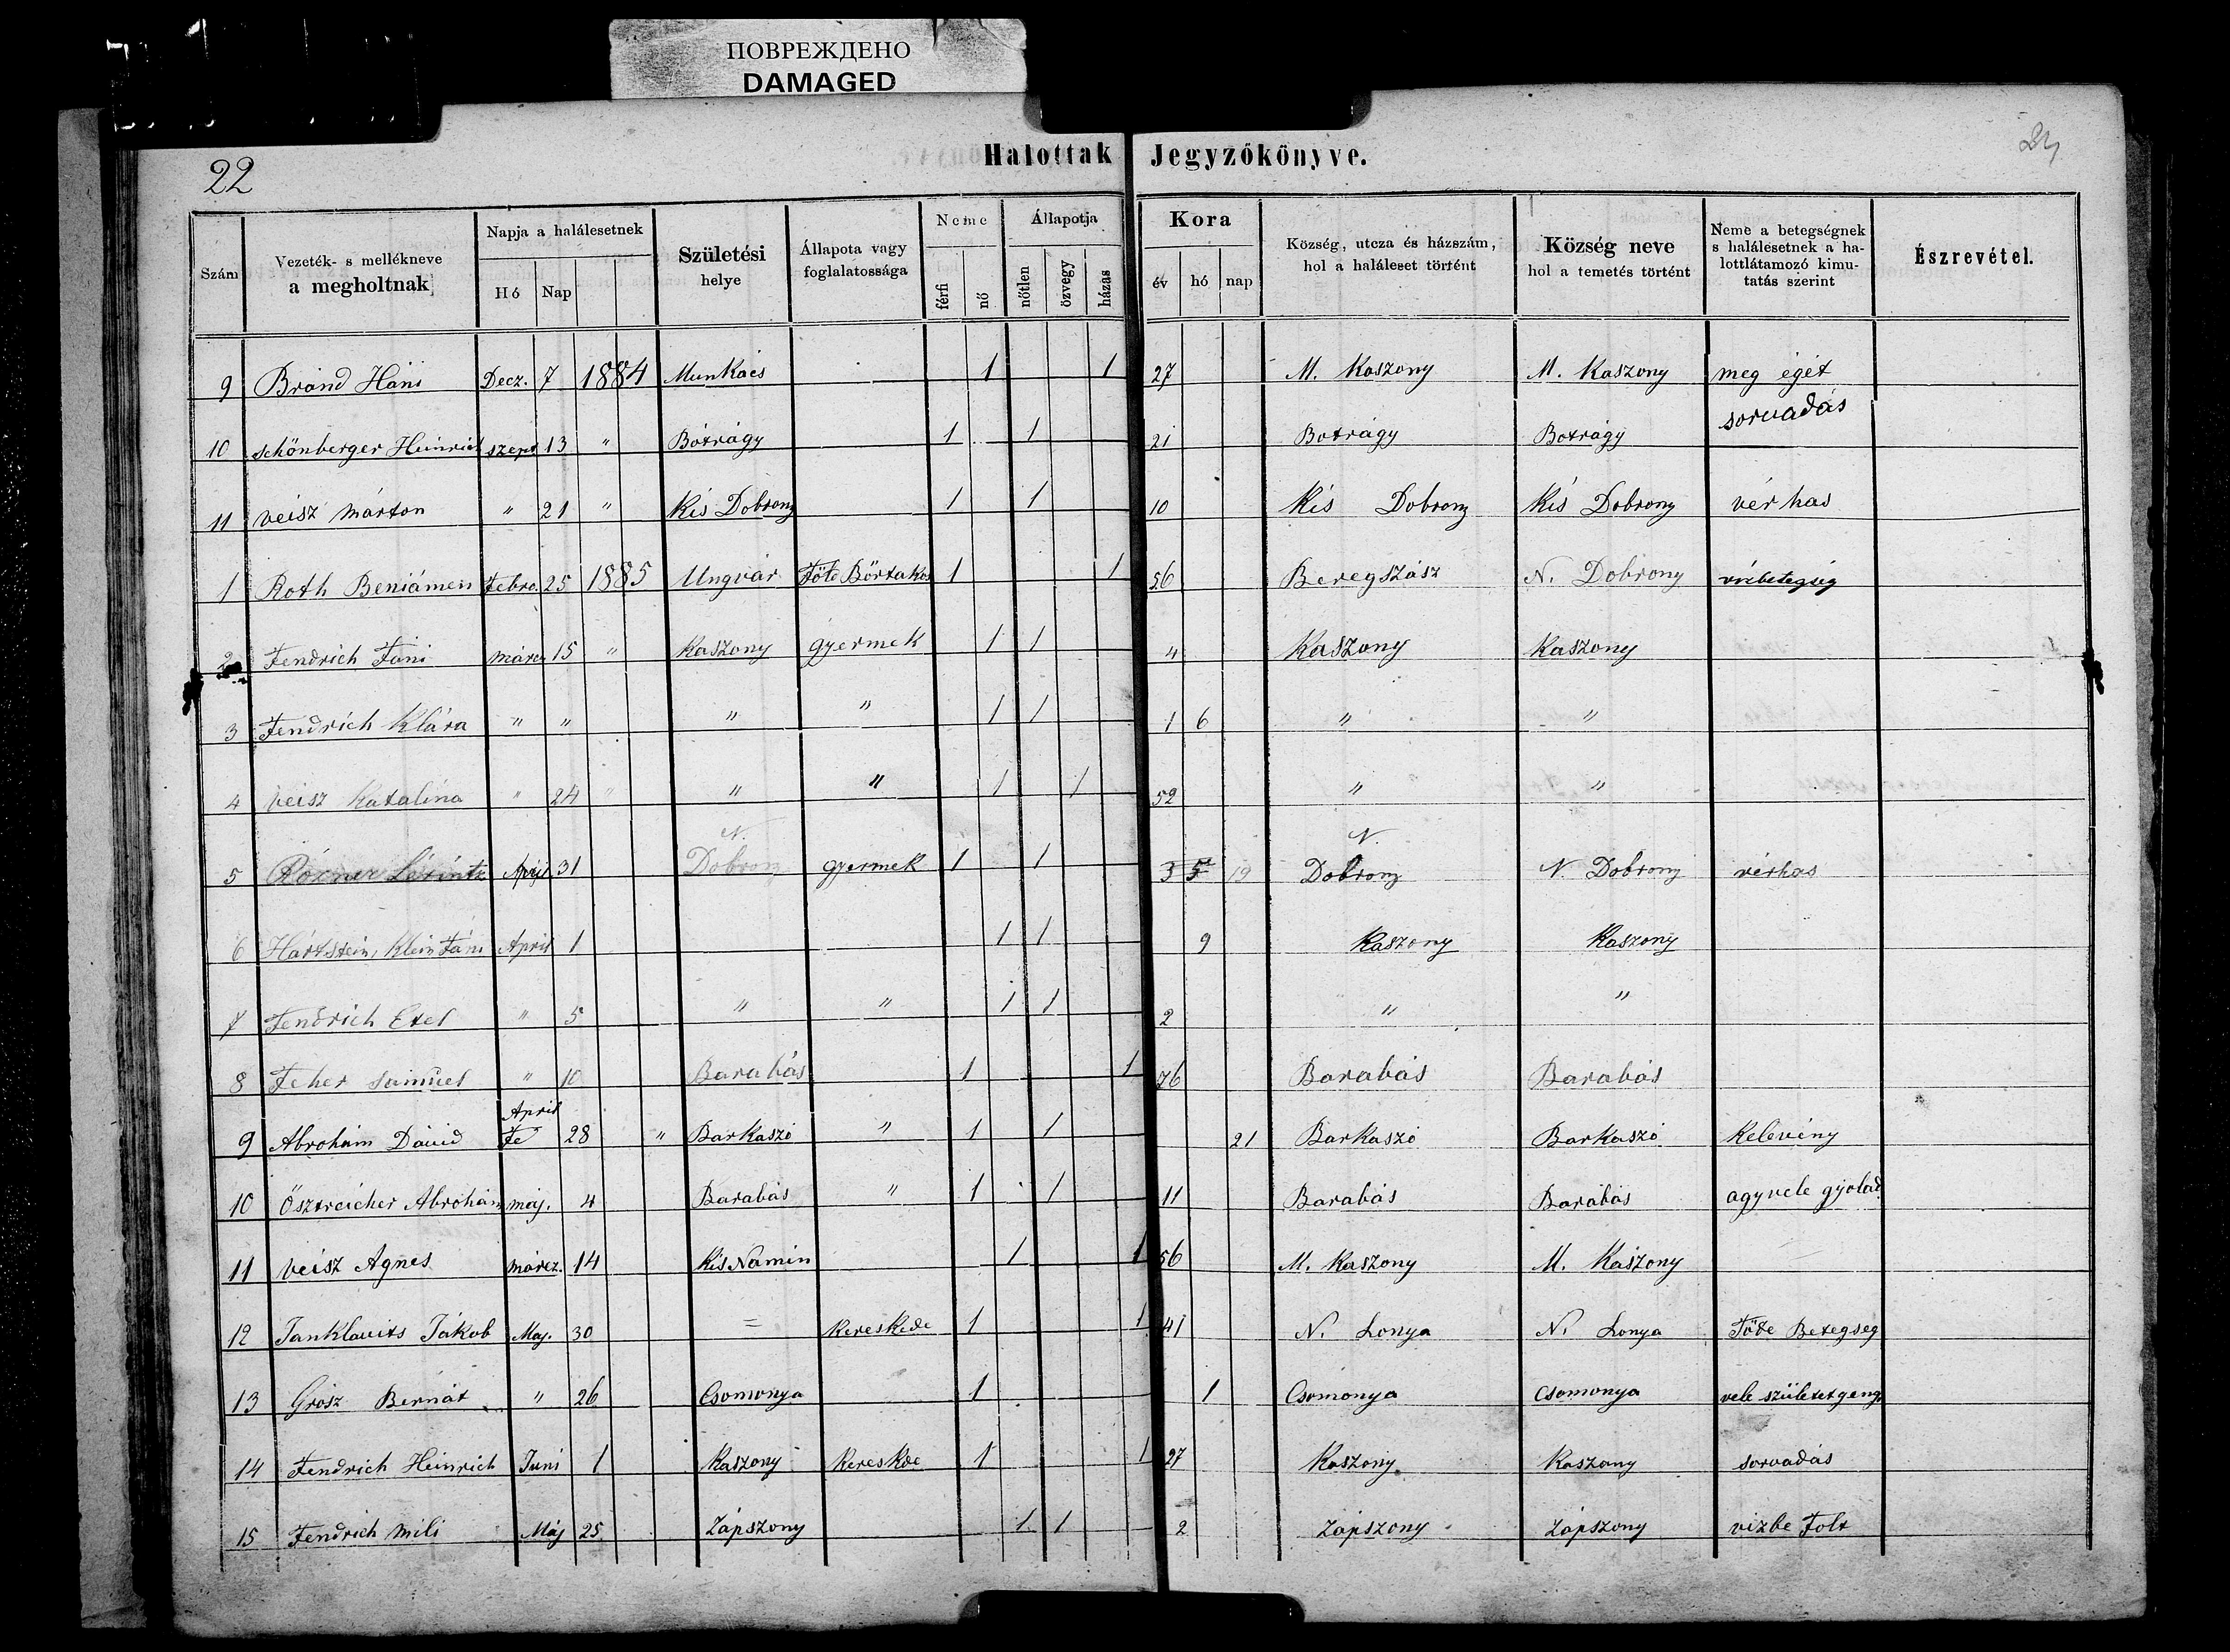 ПОВРЕЖДЕНО
DAMAGED
22
Halottak Jegyzőkönyve.
Szám Vezeték- s mellékneve a megholtnak Napja a halálesetnek Hó Nap Születési helye Állapota vagy foglalatossága Neme férfi nő Állapotja nőtlen özvegy házas Kora év hó nap Község, utcza és házszám, hol a haláleset történt Község neve hol a temetés történt Neme a betegségnek s halálesetnek a halottlátamozó kimutatás szerint Észrevétel.
9 Bránd Háni Decz. 7 1884 Munkács 1 1 27 M. Kaszony M. Kaszony meg égét
10 schönberger Heinrich szept 13 " Bótrágy 1 1 21 Botrágy Botrágy sorvadás
11 veisz márton " 21 " Kis Dobrony 1 1 10 Kis Dobrony Kis Dobrony vérhas
1 Roth Beniámen Febro. 25 1885 Ungvár 1 1 56 Beregszász N. Dobrony
2 Fendrich Fani márcz 15 " Kaszony gyermek 1 1 4 Kaszony Kaszony
3 Fendrich Klára " " " " 1 1 1 6 " "
4 veisz Katalina " 24 " " " 1 1 52 " "
5 Április 31 N. Dobrony gyermek 1 1 3 5 19 N. Dobrony N. Dobrony vérhas
6 Hartstein, Klein Fáni April 1 1 1 9 Kaszony Kaszony
7 Fendrich Etel " 5 " " 1 1 2 " "
8 Feher Samuel " 10 Barabás 1 1 76 Barabás Barabás
9 Abrohám Dávid April Fe 28 " Barkaszó " 1 1 21 Barkaszó Barkaszó Kelevény
10 Ösztreicher Abrohám máj. 4 Barabás " 1 1 11 Barabás Barabás agyvele gyolad
11 veisz Agnes márcz. 14 Kis Namin 1 1 56 M. Kaszony M. Kaszony
12 Janklovits Jákob Maj. 30 = Kereskede 1 1 41 N. Lonya N. Lonya Töde Betegseg
13 Grósz Bernát " 26 Csomonya 1 1 Csomonya Csomonya vele születet geng.
14 Fendrich Heinrich Juni 1 Kaszony Kereskde 1 1 27 Kaszony Kaszony sorvadás
15 Fendrich mili Máj 25 Zápszony 1 1 2 Zápszony Zápszony vizbe Folt